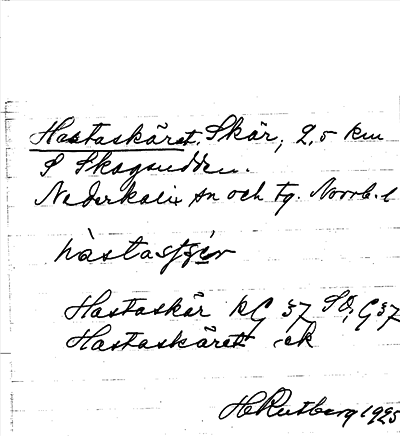 Hastaskäret. Skär, 2,5 km
S Skagsudden.
Nederkalix sn och tg. Norrb. l
hàstasʃϳær
Hastaskär KG 37 SO, G37
Hastaskäret ek
H Rutberg 1925